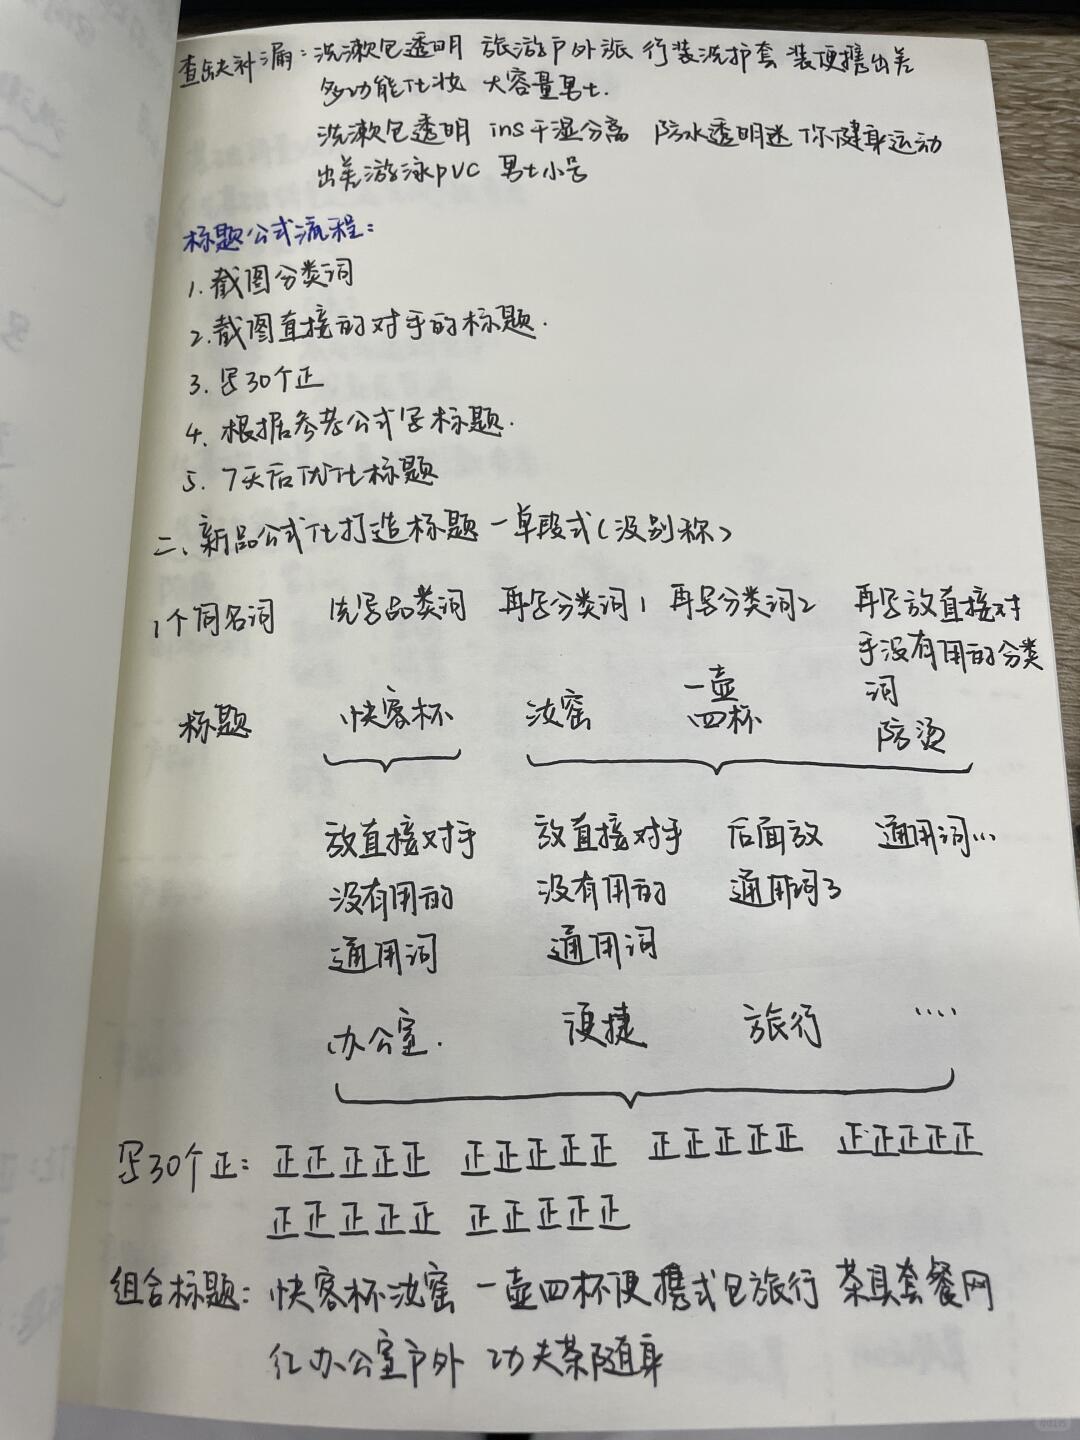 查缺补漏：洗漱包透明 旅游户外旅 行装洗护套 装便携出差
多功能化妆 大容量男士.
洗漱包透明 ins干湿分离 防水透明迷 你健身运动
出差游泳pvc 男士小号
标题公式流程：
1. 截图分类词
2. 截图直接的对手的标题.
3. 写30个正
4. 根据参考公式写标题.
5. 7天后优化标题
二、新品公式化打造标题一单段式(没别称)
1个同名词 先写品类词 再写分类词1 再写分类词2 再写放直接对
手没有用的分类
词
标题 快客杯 汝窑 一壶
四杯 防烫
放直接对手 放直接对手 后面放 通用词...
没有用的 没有用的 通用词3
通用词 通用词
办公室. 便捷 旅行 ....
写30个正：正正正正正 正正正正正 正正正正正 正正正正正
正正正正正 正正正正正
组合标题：快客杯汝窑 一壶四杯便携式包旅行 茶具套餐网
红办公室户外 功夫茶随身